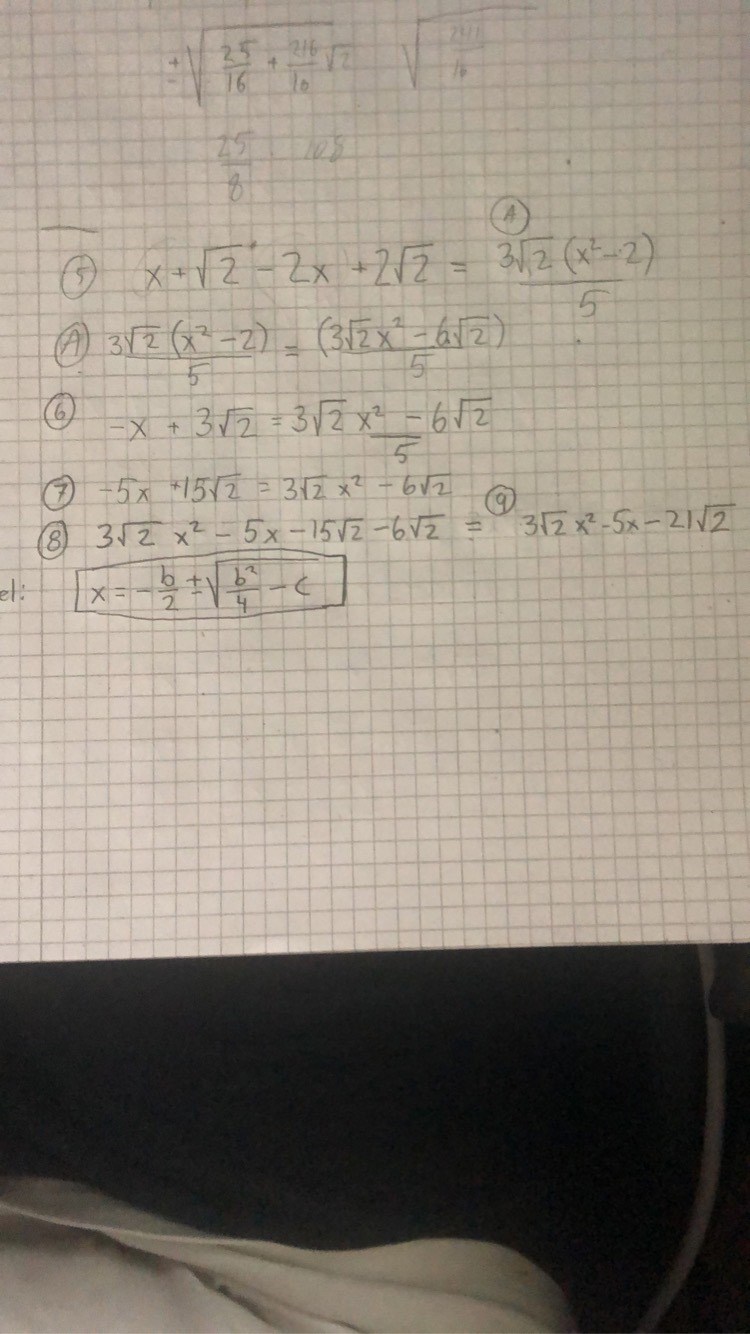 ± √(25/16 + 216/16 √2) √( /16
25/8 108
(A)
(5) x + √2 - 2x + 2√2 = 3√2 (x² - 2)/5
(A) 3√2 (x² - 2)/5 = (3√2x² - 6√2)/5
(6) -x + 3√2 = 3√2 x² - 6√2/5
(7) -5x + 15√2 = 3√2 x² - 6√2
(8) 3√2 x² - 5x - 15√2 - 6√2 = (9) 3√2 x² - 5x - 21√2
el: x = - b/2 ± √(b²/4 - c)